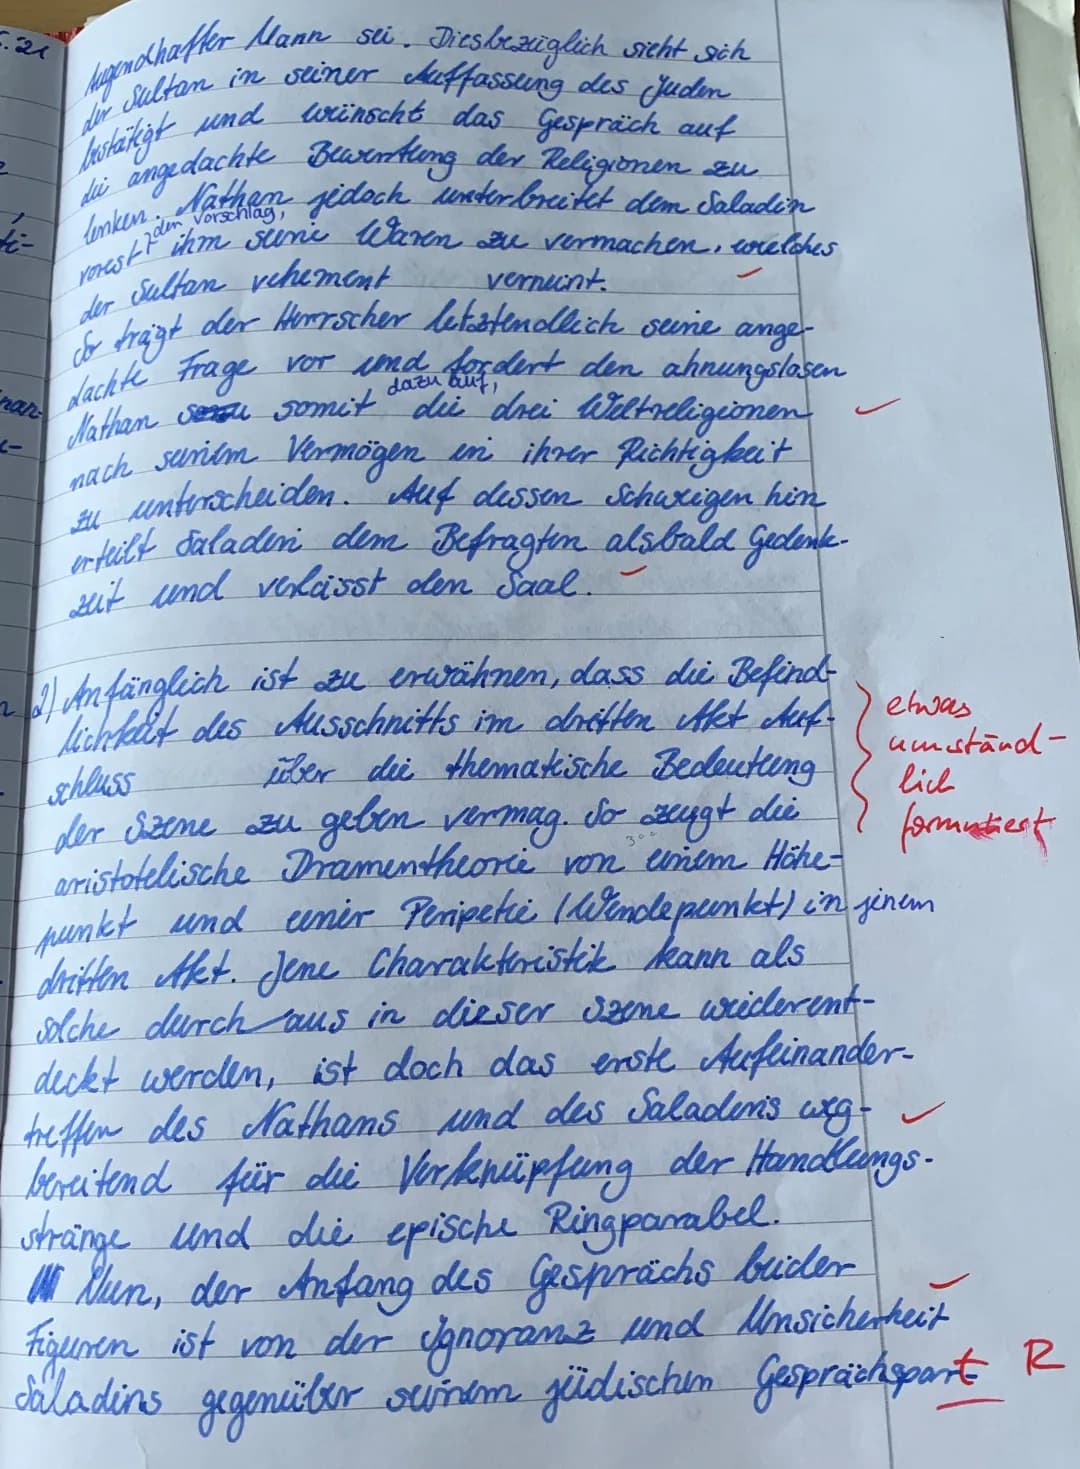 5.21
tugendhafter Mann sei. Diesbezüglich sieht sich
der Sultan in seiner Auffassung des Juden
bestätigt und wünscht das Gespräch auf
die angedachte Bewertung der Religionen zu
lenken. Nathan jedoch unterbreitet dem Saladin
den Vorschlag,
vorest ihm seine Waren zu vermachen, welches
der Sultan vehement verneint.
So trägt der Herrscher letztendlich seine ange-
dachte Frage vor und fordert den ahnungslosen
dazu auf,
Nathan somit die drei Weltreligionen
nach seinem Vermögen in ihrer Richtigkeit
zu unterscheiden. Auf dessen Schweigen hin
erteilt Saladin dem Befragten alsbald Gedenk-
zeit und verlässt den Saal.
2) Anfänglich ist zu erwähnen, dass die Befind-
lichkeit des Ausschnitts im dritten Akt Auf-
schluss über die thematische Bedeutung
der Szene zu geben vermag. So zeugt die
aristotelische Dramentheorie von einem Höhe-
punkt und einer Peripetie (Wendepunkt) in jenem
dritten Akt. Jene Charakteristik kann als
solche durchaus in dieser Szene wiederent-
deckt werden, ist doch das erste Aufeinander-
treffen des Nathans und des Saladins weg-
bereitend für die Verknüpfung der Handlungs-
stränge und die epische Ringparabel.
Nun, der Anfang des Gesprächs beider
Figuren ist von der Ignoranz und Unsicherheit
Saladins gegenüber seinem jüdischen Gesprächspart
etwas
umständ-
lich
formuliert
R